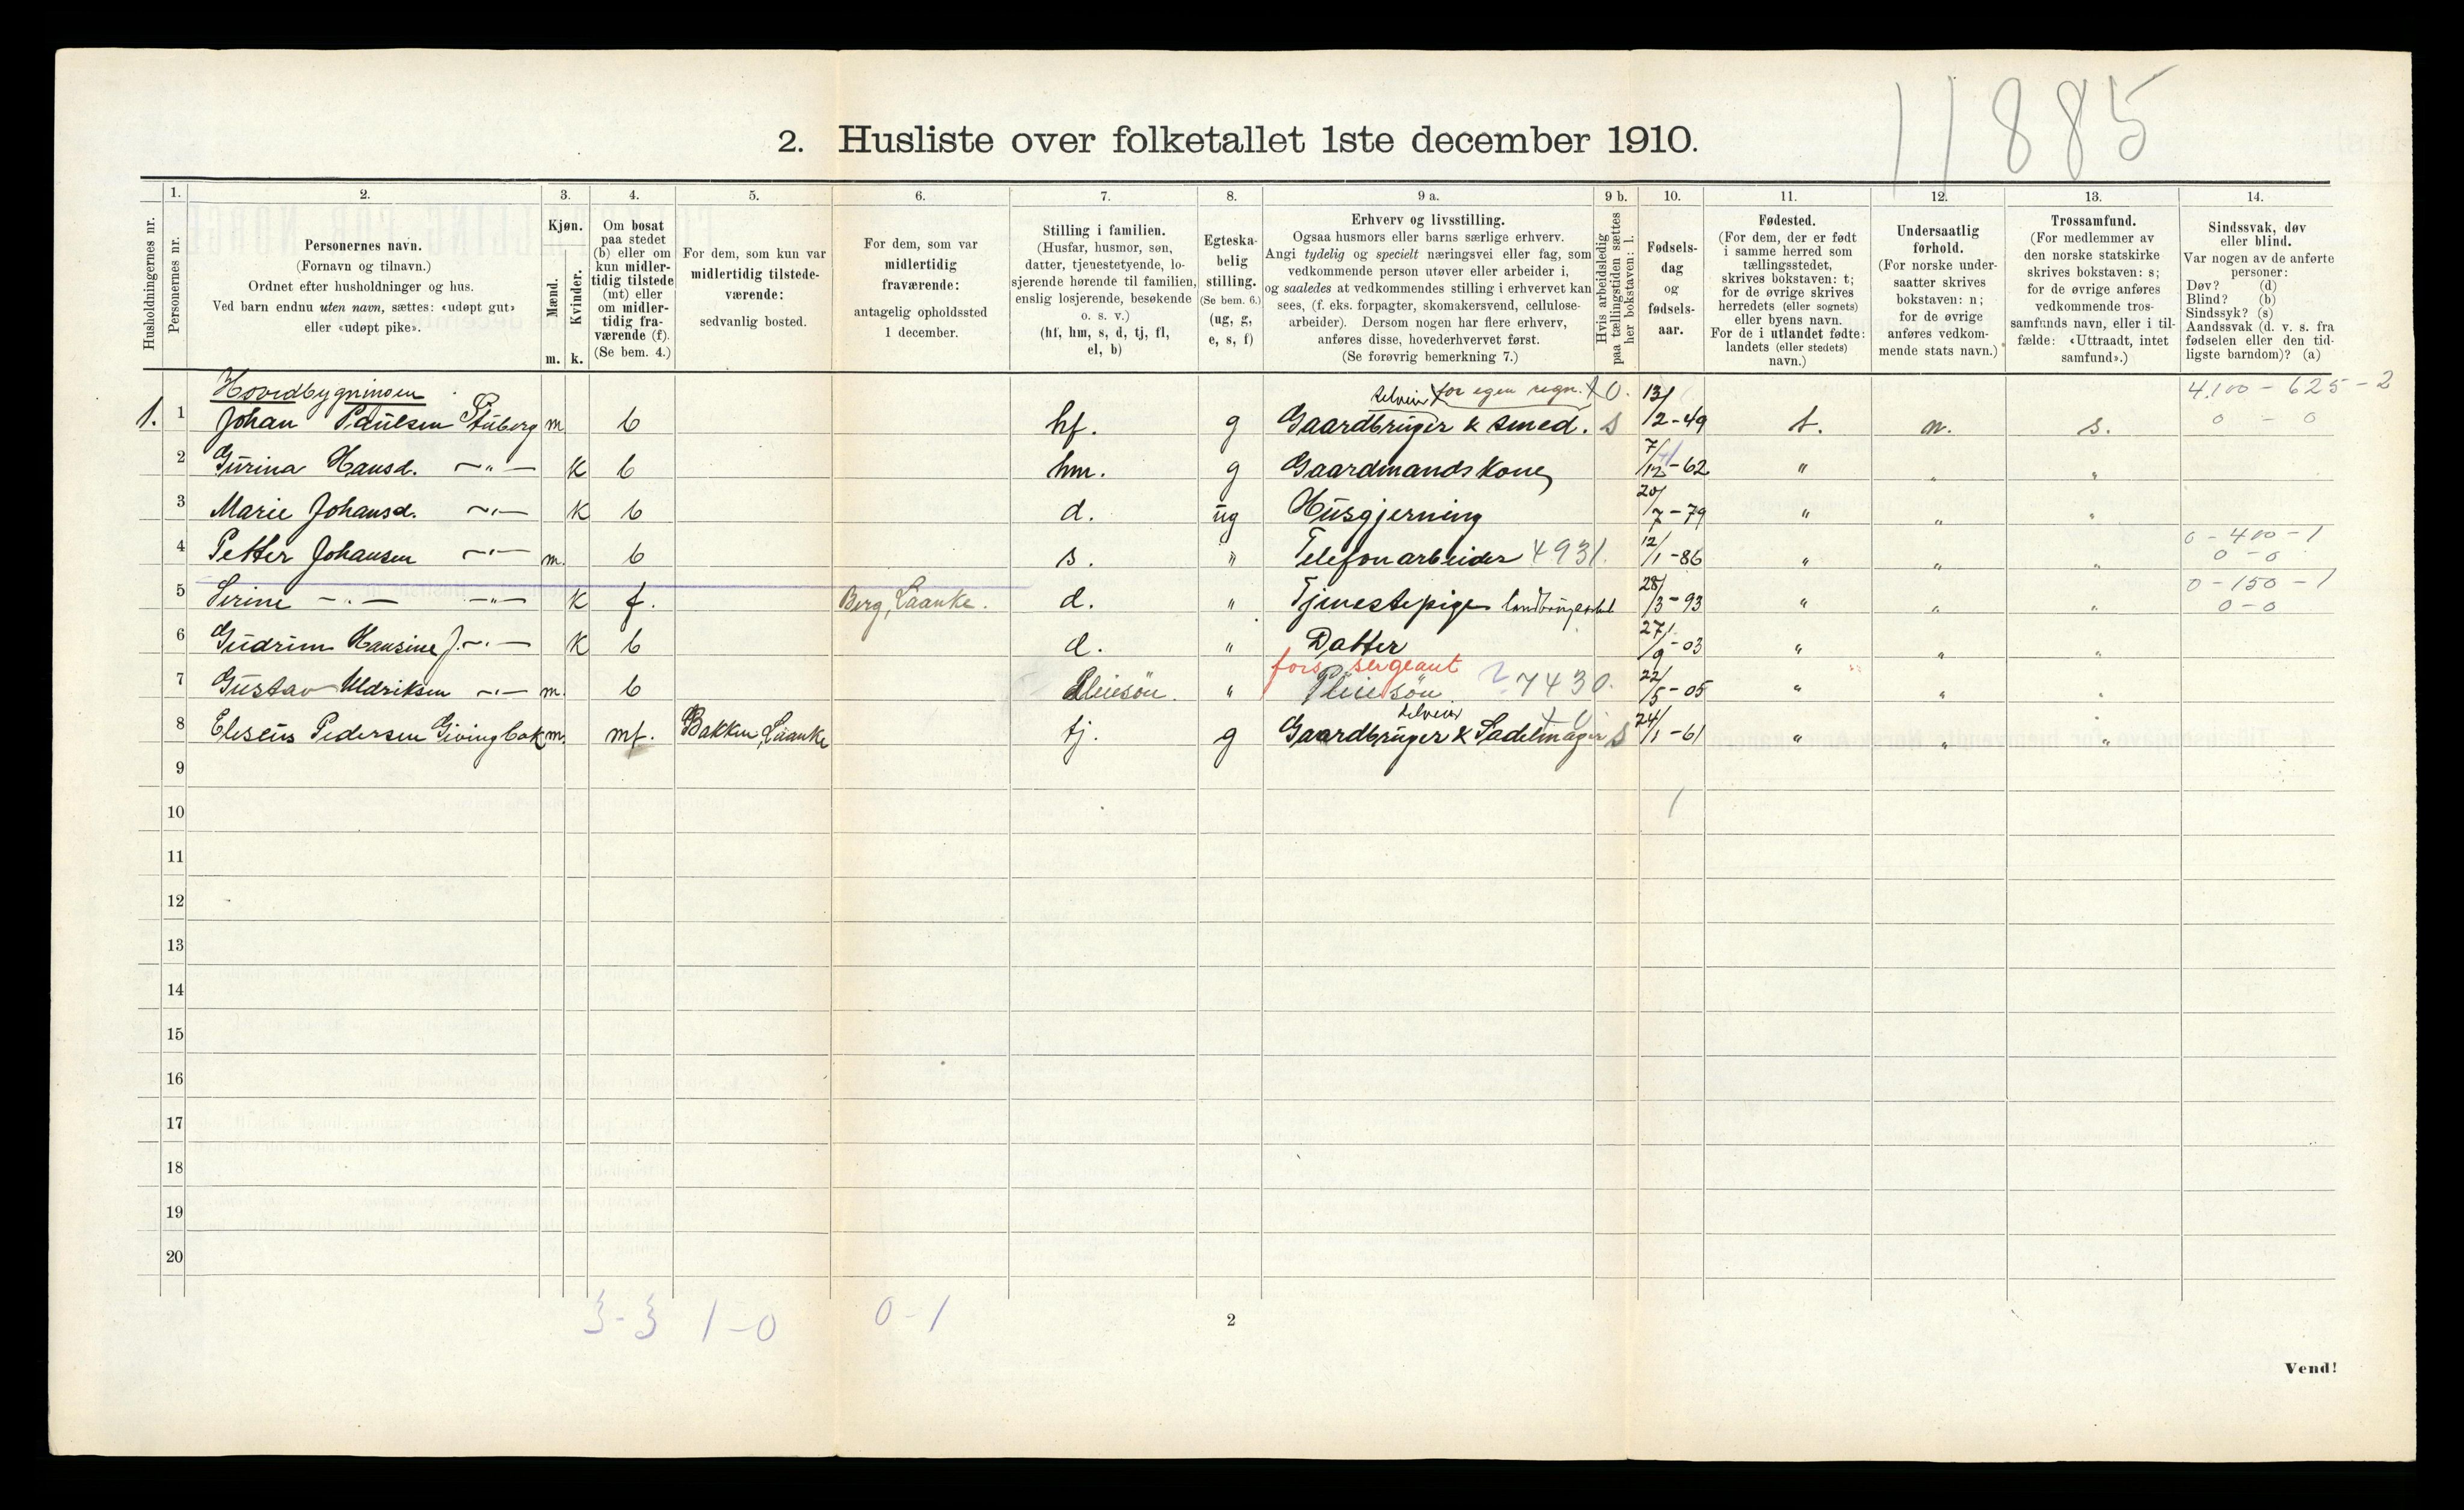 11885
2. Husliste over folketallet 1ste december 1910.
Husholdningernes nr.
1.
Personernes nr.
2.
Personernes navn.
(Fornavn og tilnavn.)
Ordnet efter husholdninger og hus.
Ved barn endnu uten navn, sættes: «udøpt gut»
eller «udøpt pike».
3.
Kjøn.
Mænd.
Kvinder.
m. k.
4.
Om bosat
paa stedet
(b) eller om
kun midler-
tidig tilstede
(mt) eller
om midler-
tidig fra-
værende (f).
(Se bem. 4.)
5.
For dem, som kun var
midlertidig tilstede-
værende:
sedvanlig bosted.
6.
For dem, som var
midlertidig
fraværende:
antagelig opholdssted
1 december.
7.
Stilling i familien.
(Husfar, husmor, søn,
datter, tjenestetyende, lo-
sjerende hørende til familien,
enslig losjerende, besøkende
o. s. v.)
(hf, hm, s, d, tj, fl,
el, b)
8.
Egteska-
belig
stilling.
(Se bem. 6.)
(ug, g,
e, s, f)
9 a.
Erhverv og livsstilling.
Ogsaa husmors eller barns særlige erhverv.
Angi tydelig og specielt næringsvei eller fag, som
vedkommende person utøver eller arbeider i,
og saaledes at vedkommendes stilling i erhvervet kan
sees, (f. eks. forpagter, skomakersvend, cellulose-
arbeider). Dersom nogen har flere erhverv,
anføres disse, hovederhvervet først.
(Se forøvrig bemerkning 7.)
9 b.
Hvis arbeidsledig
paa tællingstiden sættes
her bokstaven: l.
10.
Fødsels-
dag
og
fødsels-
aar.
11.
Fødested.
(For dem, der er født
i samme herred som
tællingsstedet,
skrives bokstaven: t;
for de øvrige skrives
herredets (eller sognets)
eller byens navn.
For de i utlandet fødte:
landets (eller stedets)
navn.)
12.
Undersaatlig
forhold.
(For norske under-
saatter skrives
bokstaven: n;
for de øvrige
anføres vedkom-
mende stats navn.)
13.
Trossamfund.
(For medlemmer av
den norske statskirke
skrives bokstaven: s;
for de øvrige anføres
vedkommende tros-
samfunds navn, eller i til-
fælde: «Uttraadt, intet
samfund».)
14.
Sindssvak, døv
eller blind.
Var nogen av de anførte
personer:
Døv? (d)
Blind? (b)
Sindssyk? (s)
Aandssvak (d. v. s. fra
fødselen eller den tid-
ligste barndom)? (a)
Hovedbygningen
selveier for egen regn. 0. 4.100 - 625 - 2
1. 1 Johan Paulsen Stuberg m b hf. g Gaardbruger & smed. s 13/2-49 t. n. s. 0 - 0
2 Gurina Hansd. -"- K b hm. g Gaardmandskone 7/12-62 " " "
3 Marie Johansd. -"- K b d. ug Husgjerning 20/7-79 " " "
0 - 400 - 1
4 Petter Johansen -"- m. b s. " Telefonarbeider 4931. 12/1-86 " " " 0 - 0
0 - 150 - 1
5 Serine -"- -"- K f. Berg, Laanke. d. " Tjenestepige 28/3-93 " " " 0-0
6 Gudrun Hansine J. -"- K b d. " Datter 27/9-03 " " "
fors. sergeant
7 Gustav Uldriksen -"- m. b Pleiesøn. " Pleiesøn ? 7430. 22/5-05 " " "
selveier
8 Eliseus Pedersen Givingbak m. mt. Bakken, Laanke tj. g Gaardbruger & Sadelmager s 24/1-61 " " "
9
10
11
12
13
14
15
16
17
18
19
20
3-3 1-0 0-1
2
Vend!